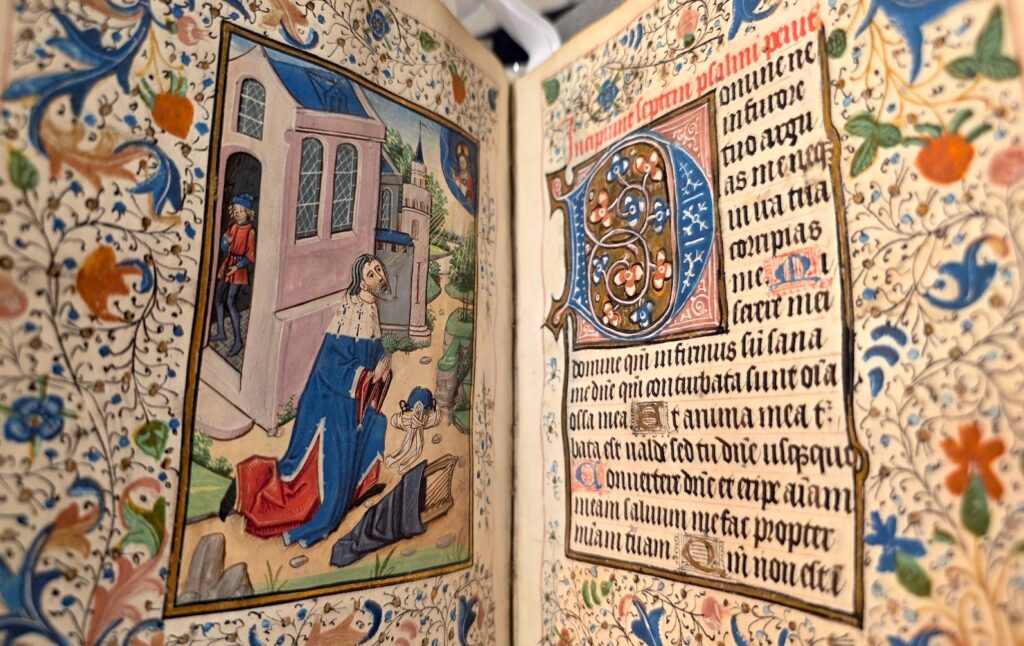 Incipiunt septem psalmi penite
Domine ne
in furore
tuo argu
as me neqꝫ
in ira tua
corripias
me. Mi
serere mei
domine qm̄ infirmus sū sana
me dn̄e qm̄ conturbata sunt oı̄a
ossa mea Et anima mea t᷑
bata est ualde sed tu dn̄e usqꝫquo
Conuertere dn̄e et eripe aı̄am
meam saluum me fac propter
mı̄am tuam. Qm̄ non est ī